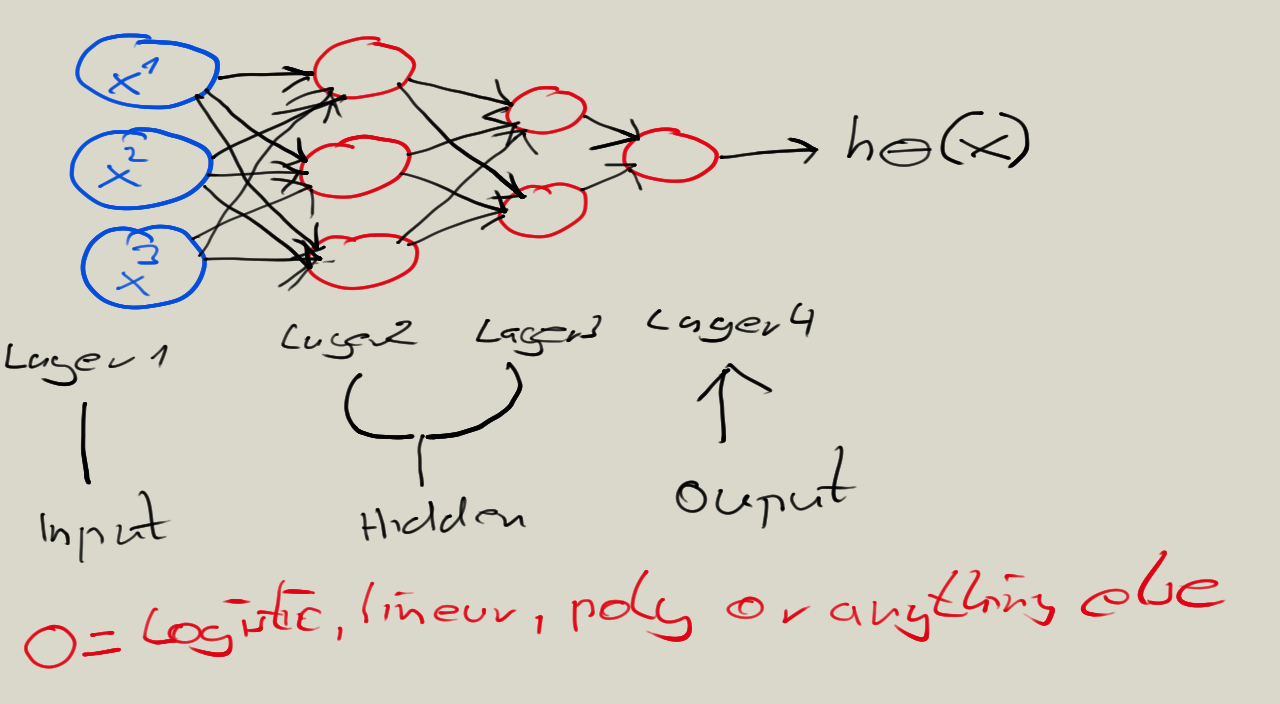 x1
x2
x3
hθ(x)
Layer 1
Layer 2
Layer 3
Layer 4
Input
Hidden
Ouput
O= Logistic, linear, poly or anything else